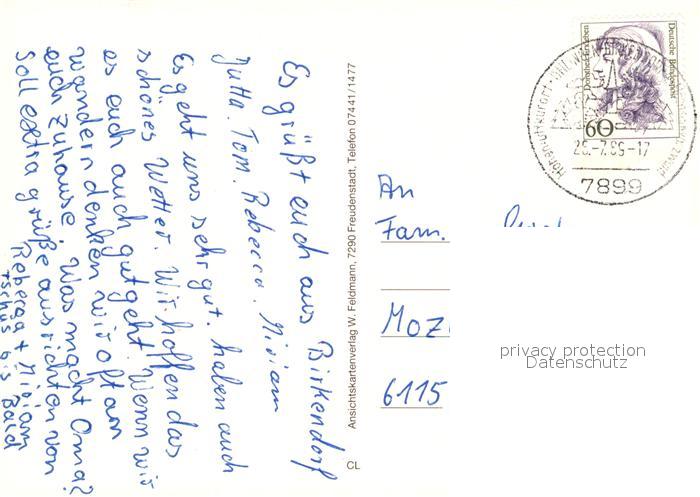 Es grüßt euch aus Birkendorf
Jutta. Tom. Rebecca. Miriam
Es geht uns sehr gut. haben auch
schönes Wetter. Wir hoffen das
es euch auch gut geht. Wenn wir
wandern denken wir oft an
euch zuhause. Was macht Oma?
Soll extra grüße ausrichten von
Rebecca + Miriam
tschüs bis Bald
Ansichtskartenverlag W. Feldmann, 7290 Freudenstadt, Telefon 07441/1477
CL
Deutsche Bundespost
60
7899
An
Fam.
Moz
6115
privacy protection
Datenschutz